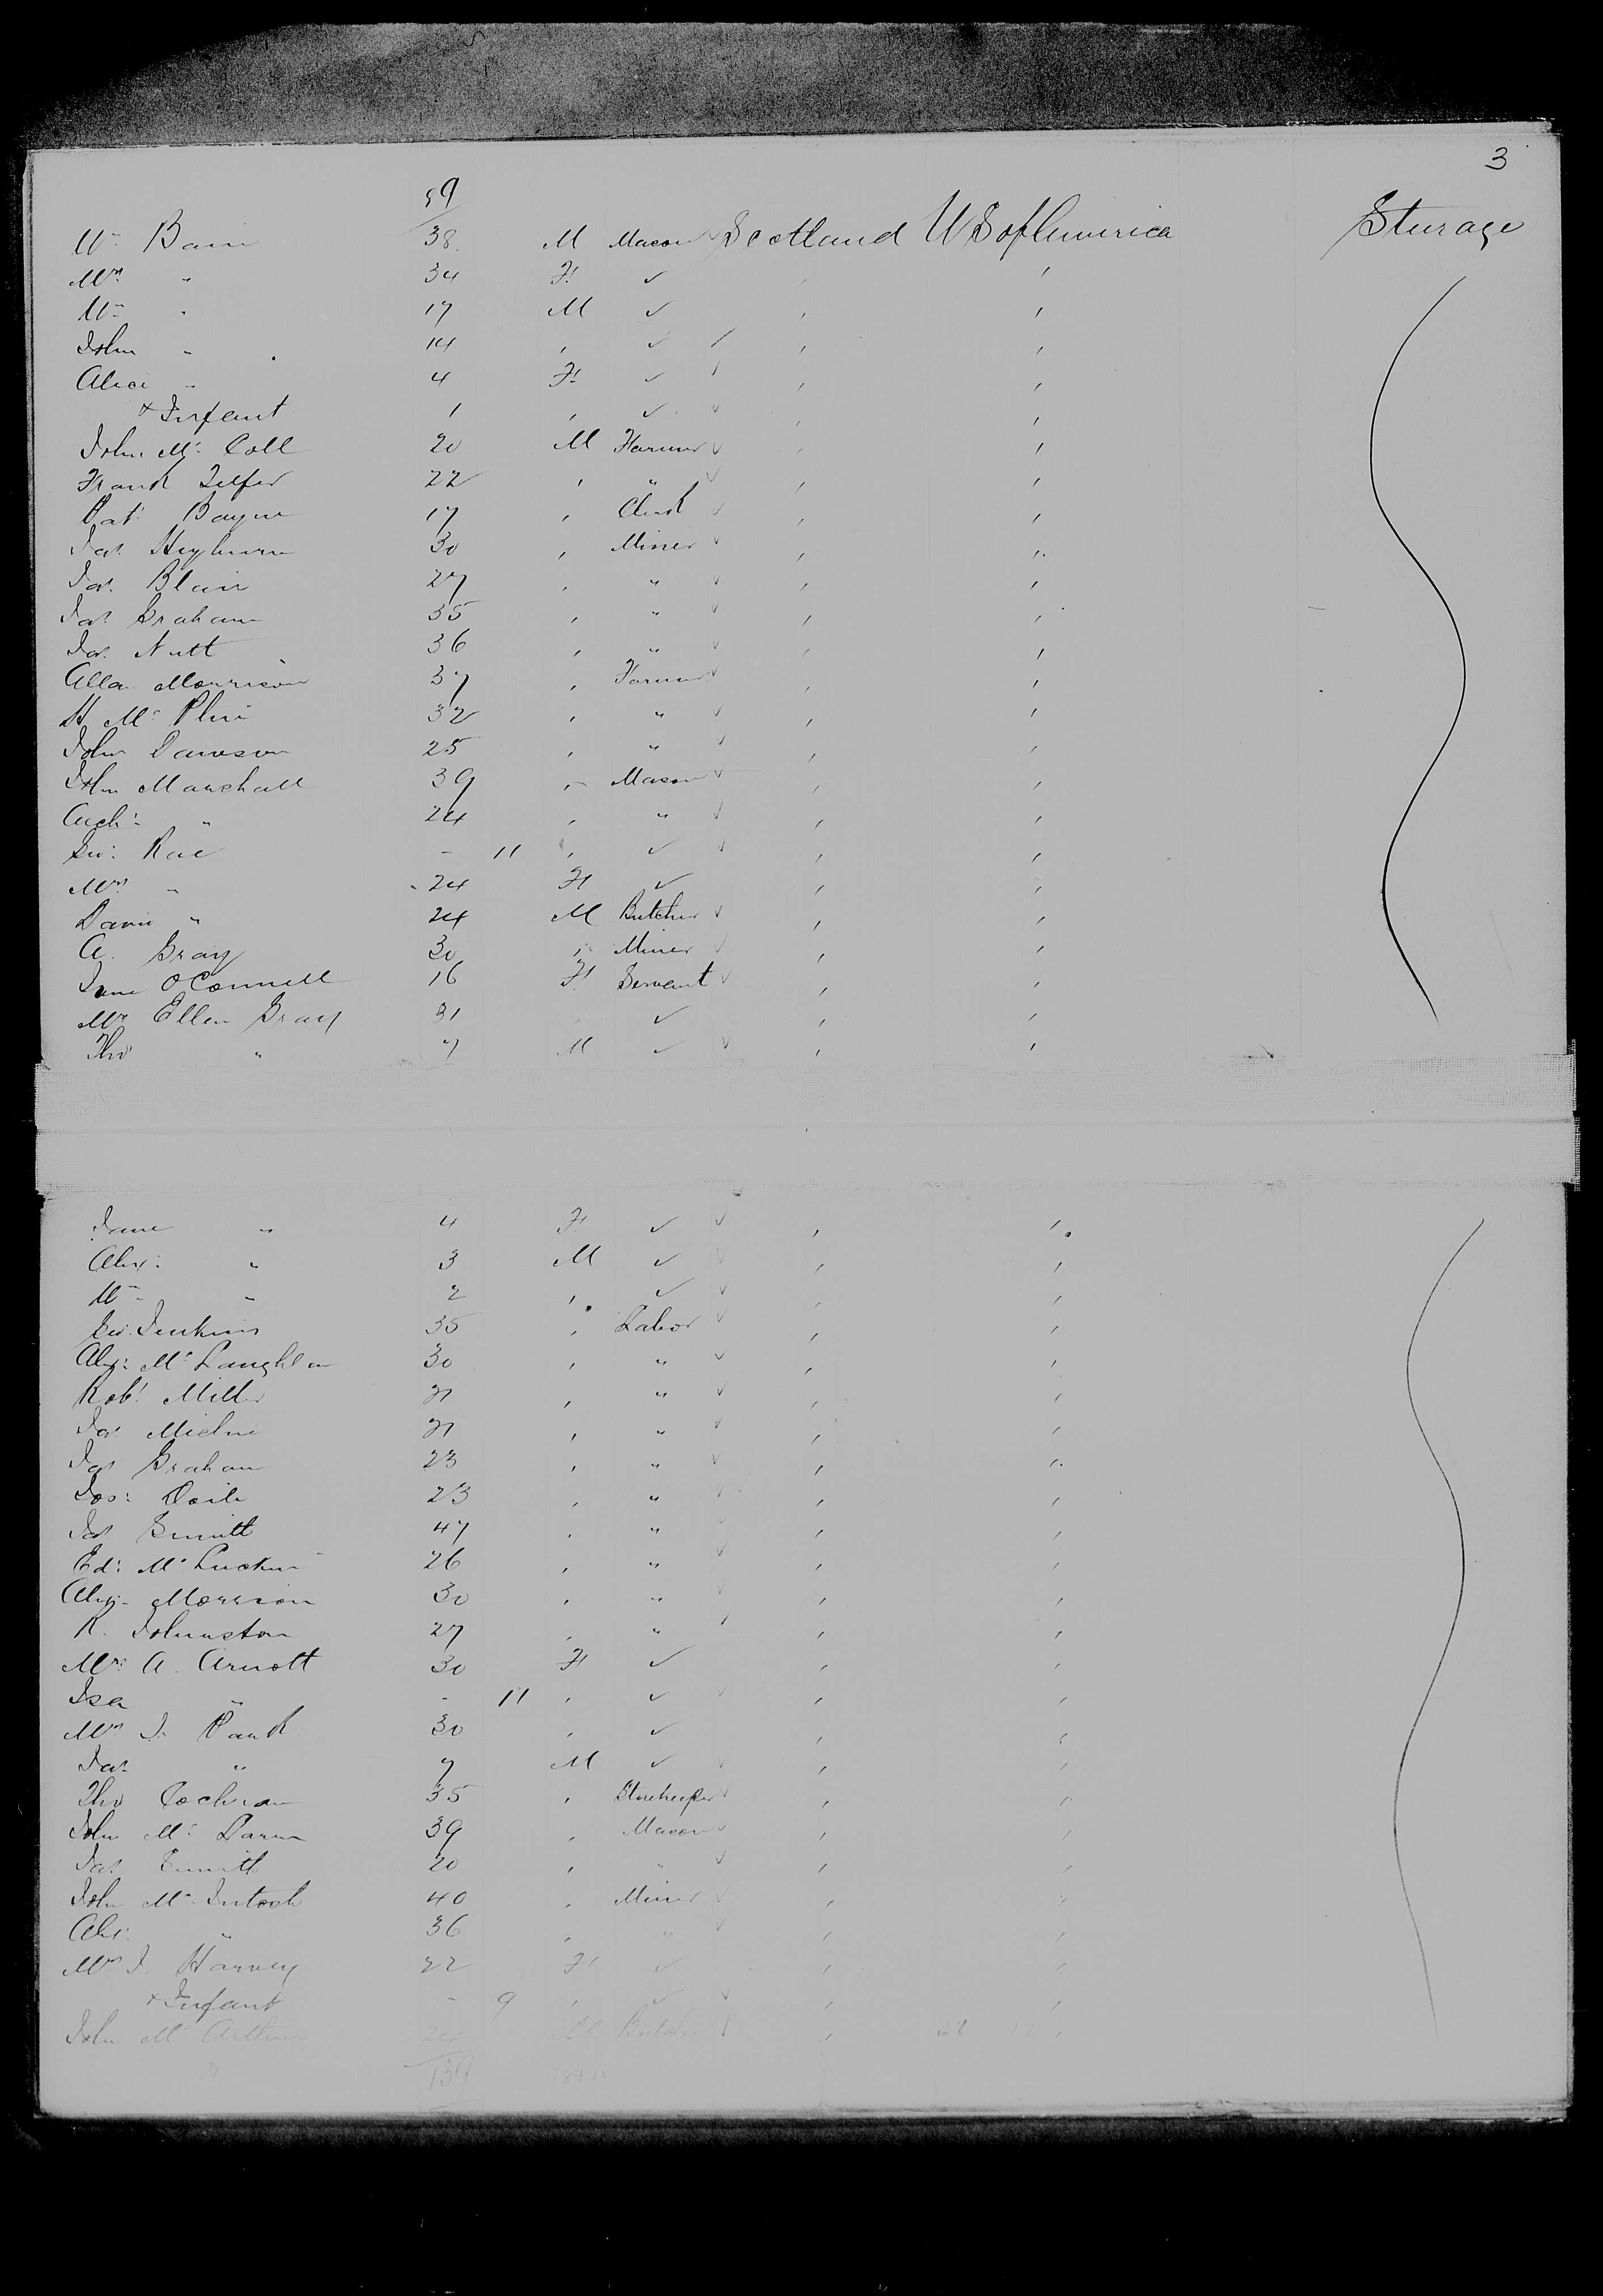 3
89
Wm Bain 38 M Mason Scotland U S of America Sturage
Mrs " 34 F ✓ , ,
Wm " 17 M ✓ , ,
John " 14 , ✓ , ,
Alice " 4 F ✓ , ,
+ Infant 1 , ✓ , ,
John Mc Coll 20 M Farmer , ,
Frank Telfer 22 , " , ,
Pat Bayne 17 , Clerk , ,
Jas Hepburn 30 , Miner , ,
Jas Blair 27 , " , ,
Jas Graham 35 , " , ,
Jas Nutt 36 , " , ,
Allan Morrison 37 , Farmer , ,
H Mc Phie 32 , " , ,
John Dawson 25 , " , ,
John Marshall 39 , Mason , ,
Arch: " 24 , " , ,
Geo: Rae - 11 , ✓ , ,
Mrs " 24 F ✓ , ,
David " 24 M Butcher , ,
A. Gray 30 , Miner , ,
Jane O'Connell 16 F Servant , ,
Mrs Ellen Gray 31 ✓ , ,
Thos " 7 M ✓ , ,
Jane " 4 F ✓ , ,
Alex: " 3 M ✓ , ,
Wm " 2 , ✓ , ,
Geo. Jenkins 35 , Labor , ,
Alex: Mc Laughlan 30 , " , ,
Robt Miller 21 , " , ,
Jas Michie 21 , " , ,
Jas Graham 23 , " , ,
Jos: 23 , " , ,
Jas Smith 47 , " , ,
Ed: Mc Luckie 26 , " , ,
Alex: Morrison 30 , " , ,
R. Johnston 27 , " , ,
Mrs A. Arnott 30 F ✓ , ,
Isa " - 11 , ✓ , ,
Mrs J. 30 , ✓ , ,
Jas " 7 M ✓ , ,
Thos Cochran 35 , Storekeeper , ,
John Mc Laren 39 , Mason , ,
Jas Smith 20 , " , ,
John Mc Intosh 40 , Miner , ,
Alex: " 36 , " , ,
Mrs J. Harvey 22 F ✓ , ,
+ Infant - 9 , ✓ , ,
John Mc Arthur 24 M Butcher , ,
139